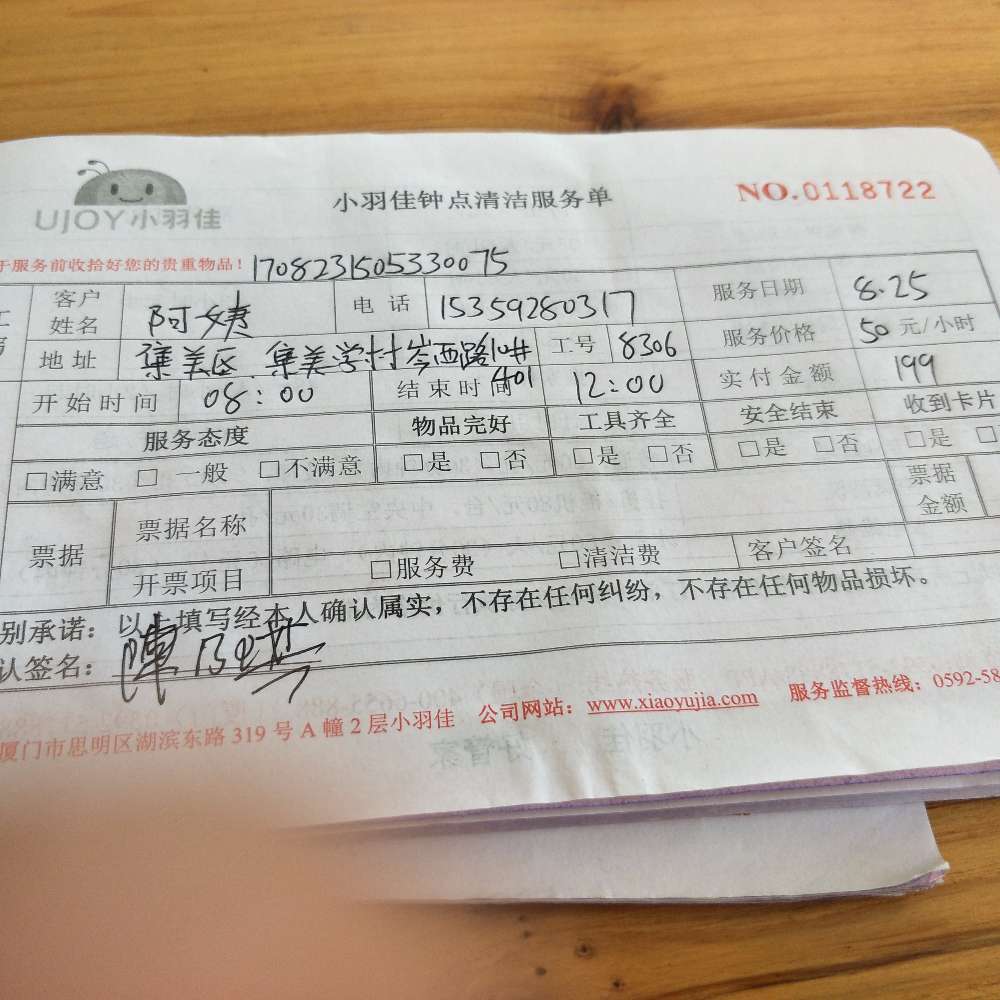 UJOY小羽佳
小羽佳钟点清洁服务单
NO.0118722
于服务前收拾好您的贵重物品！1708231505330075
客户姓名 阿姨 电话 15359280317 服务日期 8.25
地址 集美区 集美学村岑西路10# 401 工号 8306 服务价格 50元/小时
开始时间 08:00 结束时间 12:00 实付金额 199
服务态度 物品完好 工具齐全 安全结束 收到卡片
□满意 □一般 □不满意 □是 □否 □是 □否 □是 □否 □是 □
票据 票据名称 票据金额
开票项目 □服务费 □清洁费 客户签名
别承诺：以上填写经本人确认属实，不存在任何纠纷，不存在任何物品损坏。
认签名：陳
厦门市思明区湖滨东路319号A幢2层小羽佳 公司网站：www.xiaoyujia.com 服务监督热线：0592-58